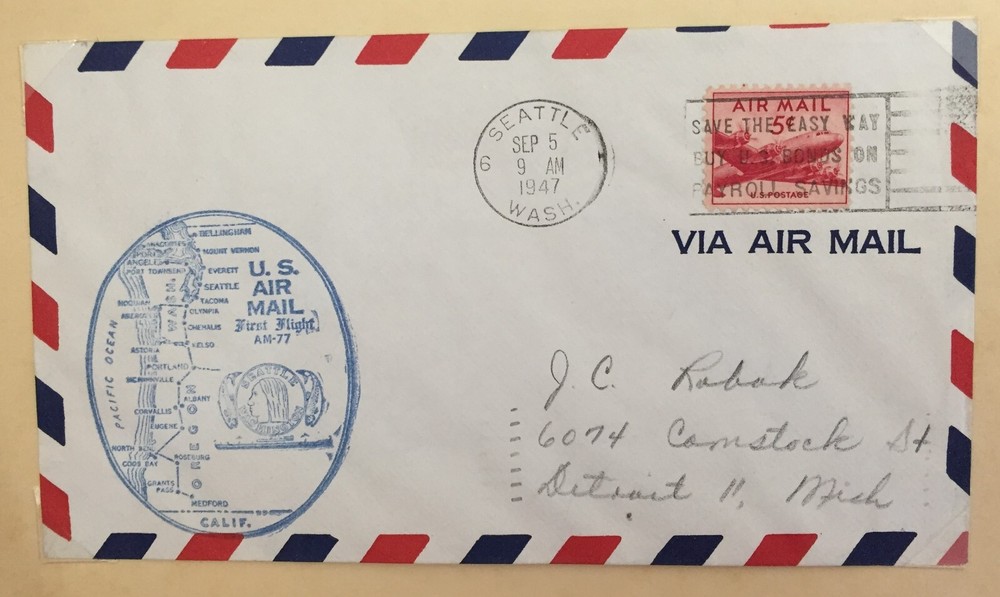 SEATTLE
SEP 5
9 AM
1947
WASH.
6
SAVE THE EASY WAY
BUY U.S. BONDS ON
PAYROLL SAVINGS
AIR MAIL
5¢
U.S. POSTAGE
VIA AIR MAIL
BELLINGHAM
ANACORTES
MOUNT VERNON
PORT
ANGELES
PORT TOWNSEND
EVERETT
SEATTLE
TACOMA
OLYMPIA
HOQUIAM
ABERDEEN
CHEHALIS
KELSO
ASTORIA
PORTLAND
ALBANY
CORVALLIS
EUGENE
NORTH BEND
COOS BAY
ROSEBURG
GRANTS
PASS
MEDFORD
CALIF.
WASH.
OREGON
PACIFIC OCEAN
U.S.
AIR
MAIL
First Flight
AM-77
SEATTLE
J. C. Robak
6074 Comstock St
Detroit 11, Mich